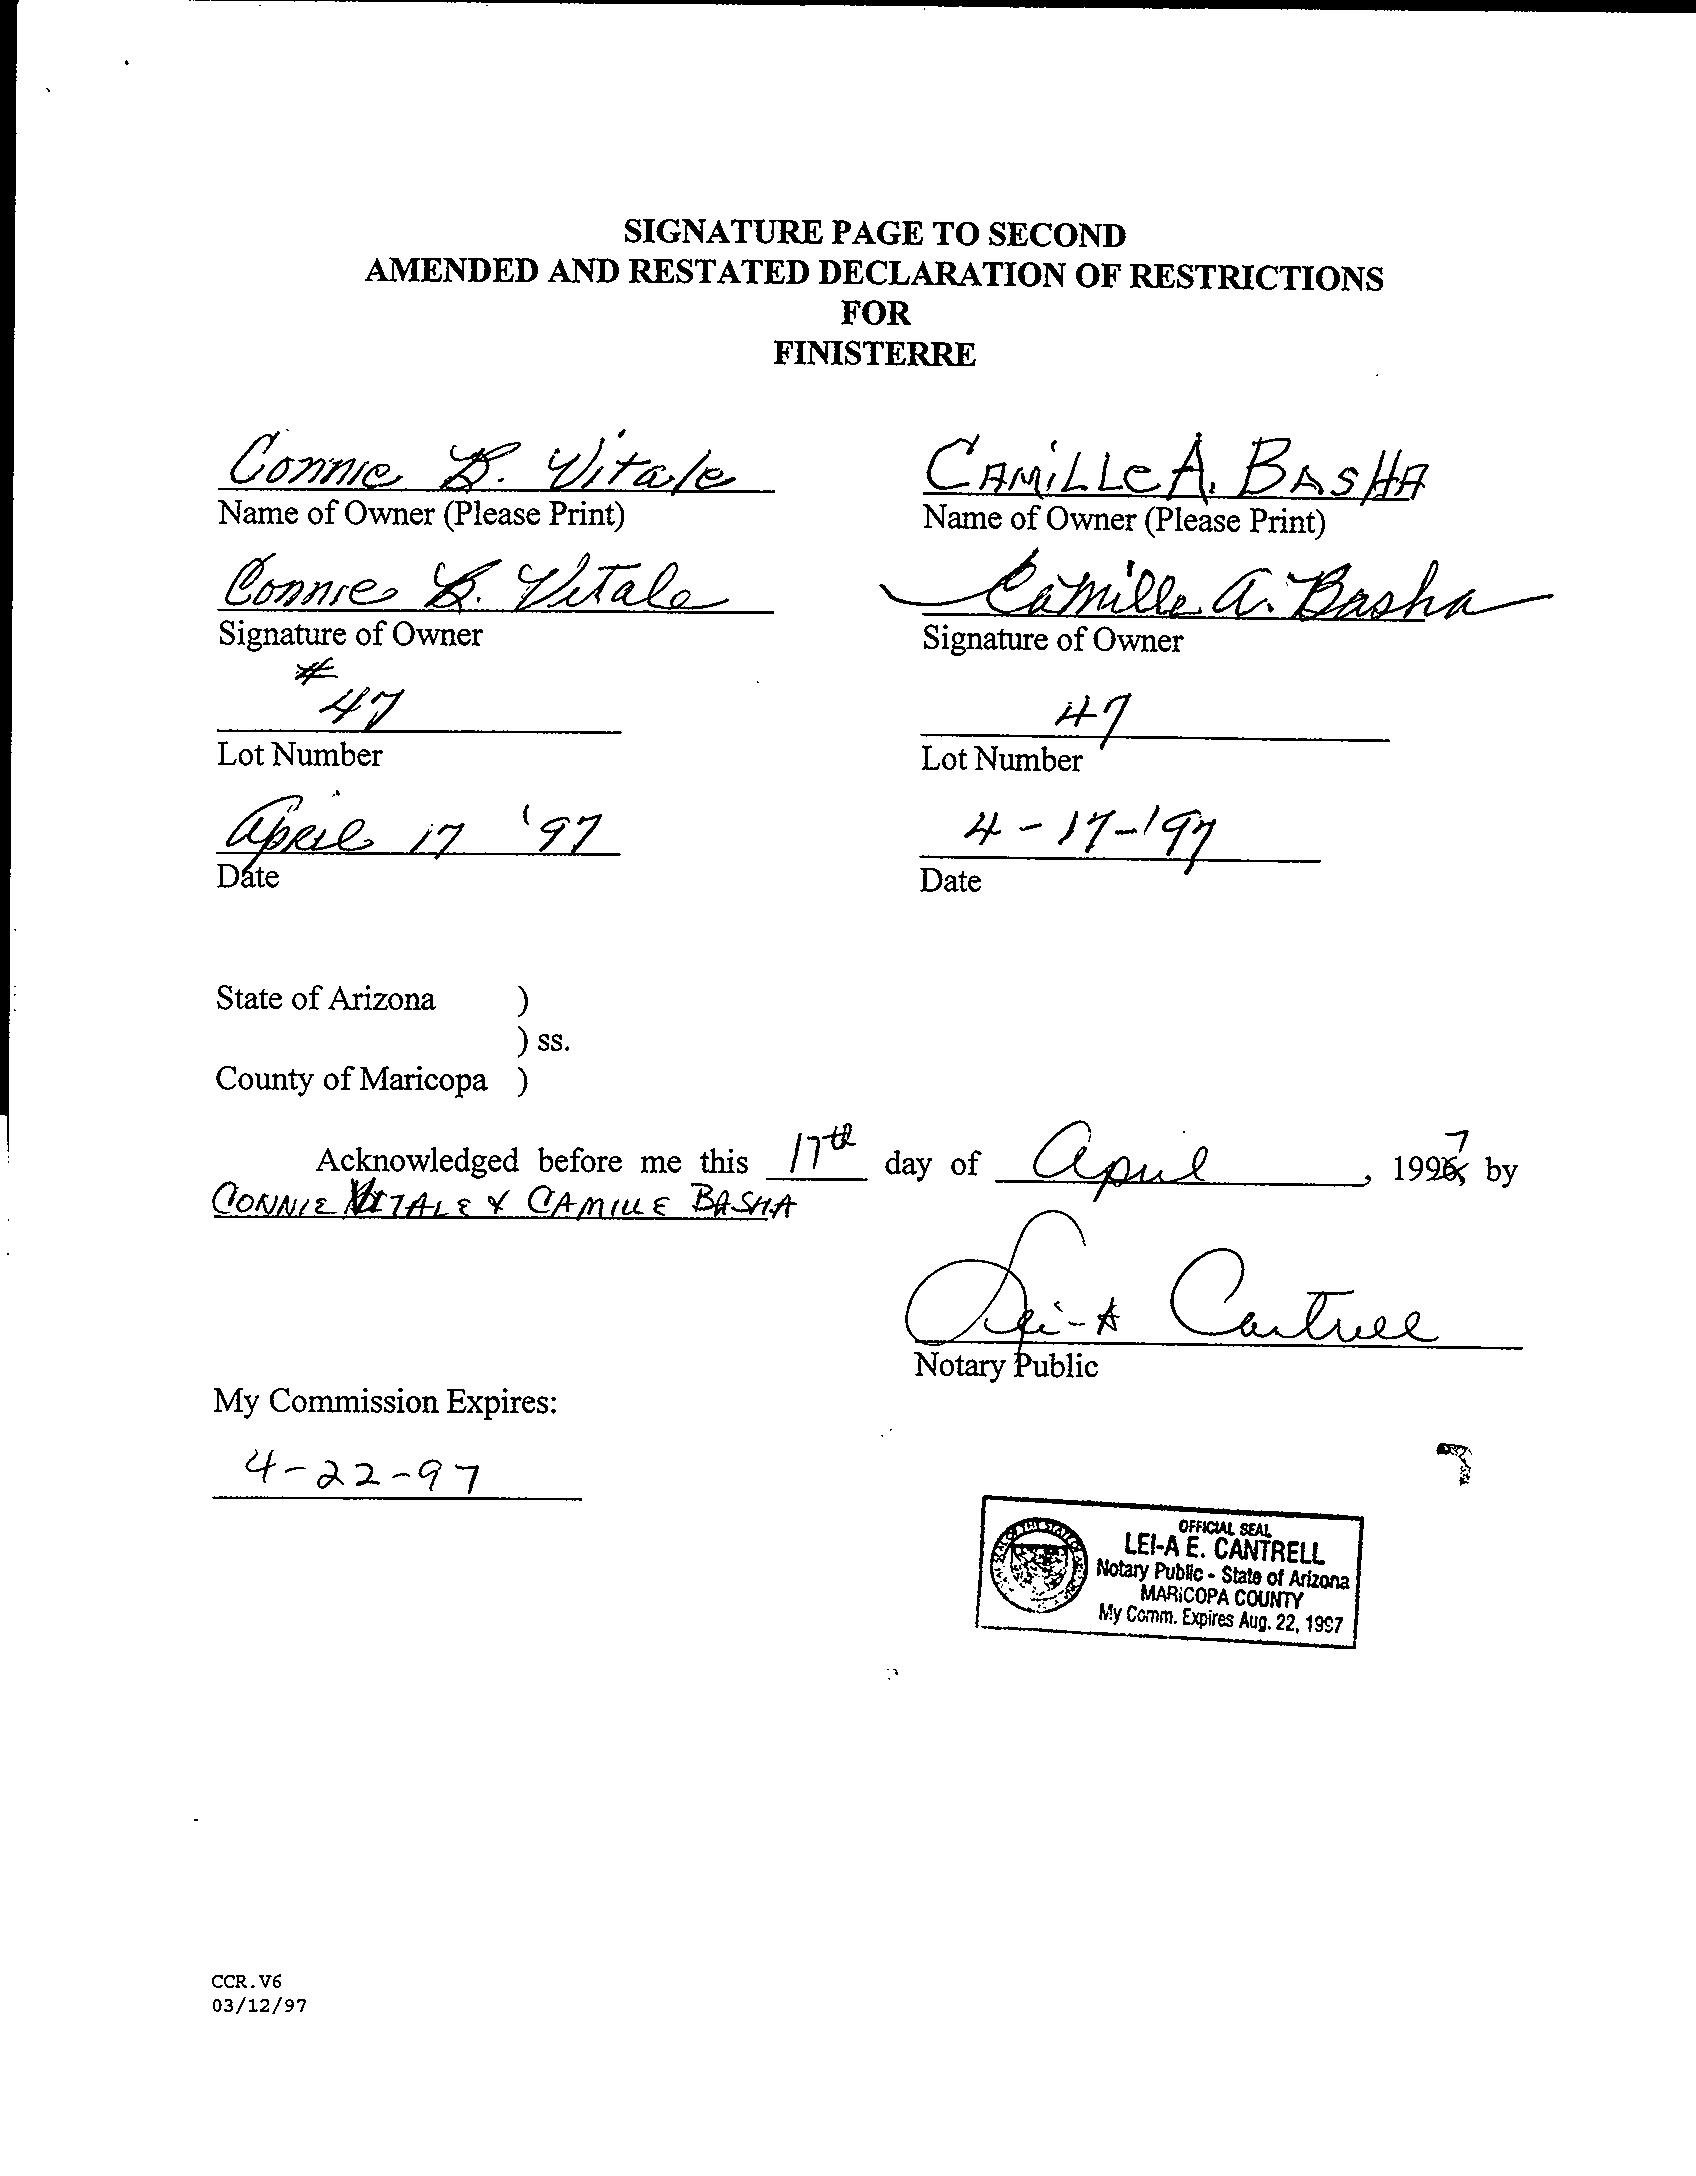 SIGNATURE PAGE TO SECOND
AMENDED AND RESTATED DECLARATION OF RESTRICTIONS
FOR
FINISTERRE
Connie B. Vitale
Name of Owner (Please Print)
Connie B. Vitale
Signature of Owner
#
47
Lot Number
April 17 '97
Date
CAMiLLe A. BASHA
Name of Owner (Please Print)
Camille A. Basha
Signature of Owner
47
Lot Number
4-17-'97
Date
State of Arizona )
) ss.
County of Maricopa )
Acknowledged before me this 17th day of April, 1997 by
CONNIE VITALE & CAMILLE BASHA
Lei-A Cantrell
Notary Public
My Commission Expires:
4-22-97
OFFICIAL SEAL
LEI-A E. CANTRELL
Notary Public - State of Arizona
MARICOPA COUNTY
My Comm. Expires Aug. 22, 1997
CCR.V6
03/12/97